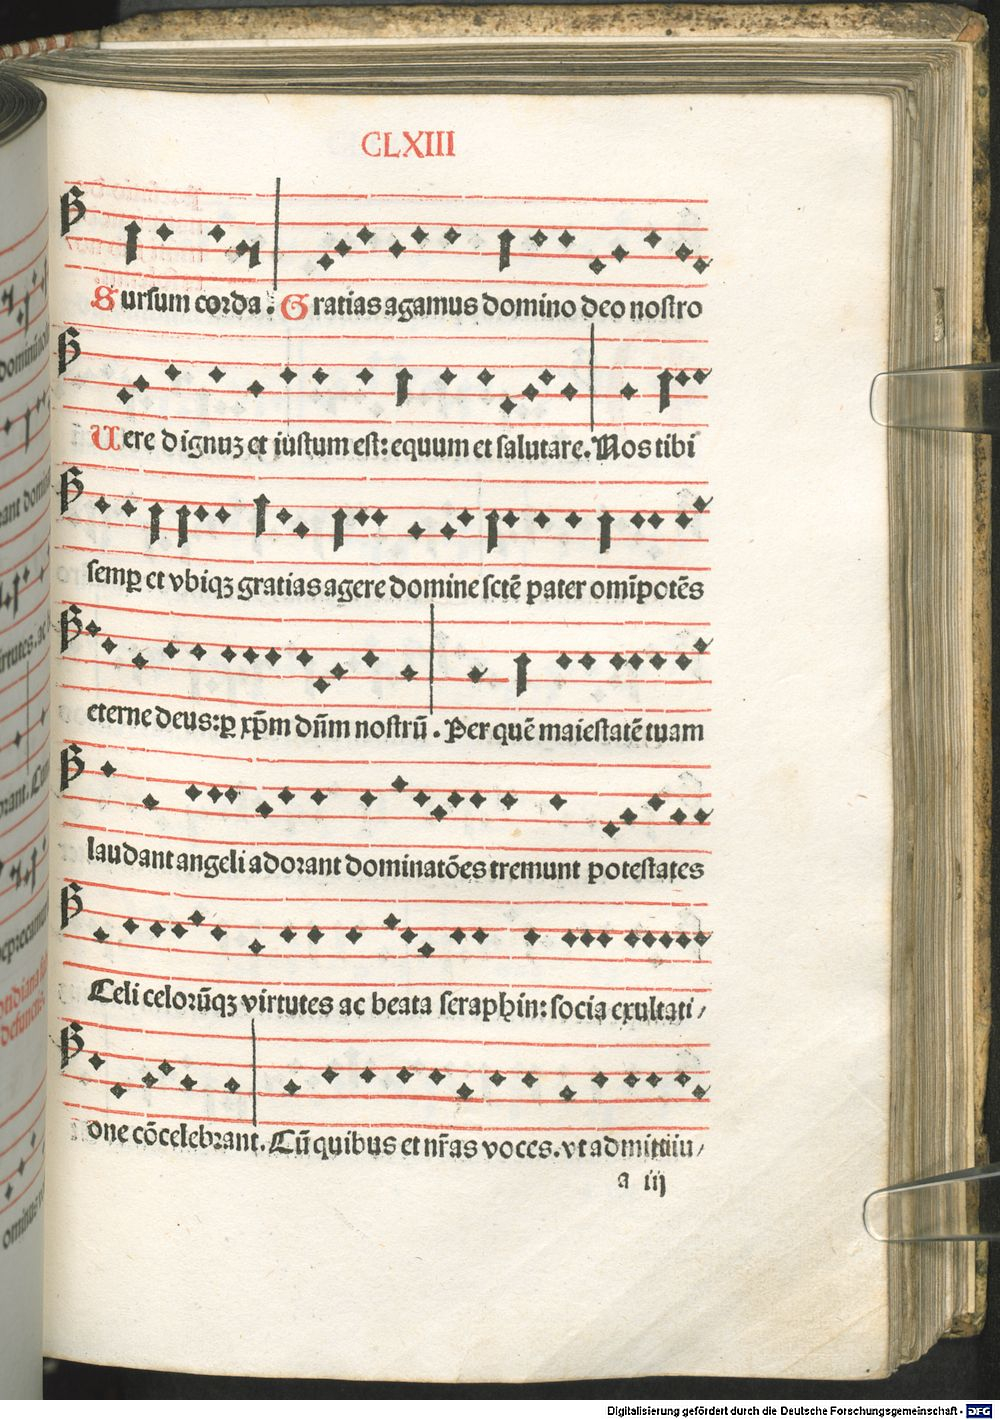 CLXIII
Sursum corda. Gratias agamus domino deo nostro
Uere dignuꝫ et iustum est: equum et salutare. Nos tibi
semꝑ et vbiqꝫ gratias agere domine sctē pater omīpotēs
eterne deus: ꝑ xp̄m dn̄m nostrū. Per quē maiestatē tuam
laudant angeli adorant dominatōes tremunt potestates
Celi celorūqꝫ virtutes ac beata seraphin: socia exultati/
one cōcelebrant. Cū quibus et nr̄as voces. vt admittiiu/
a iij
Digitalisierung gefördert durch die Deutsche Forschungsgemeinschaft - DFG